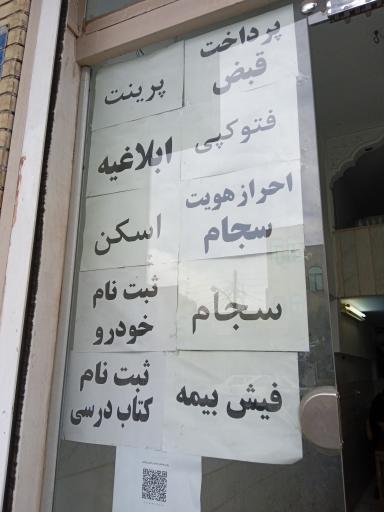 پرداخت
قبض
پرینت
فتوکپی
ابلاغیه
احراز هویت
سجام
اسکن
سجام
ثبت نام
خودرو
فیش بیمه
ثبت نام
کتاب درسی